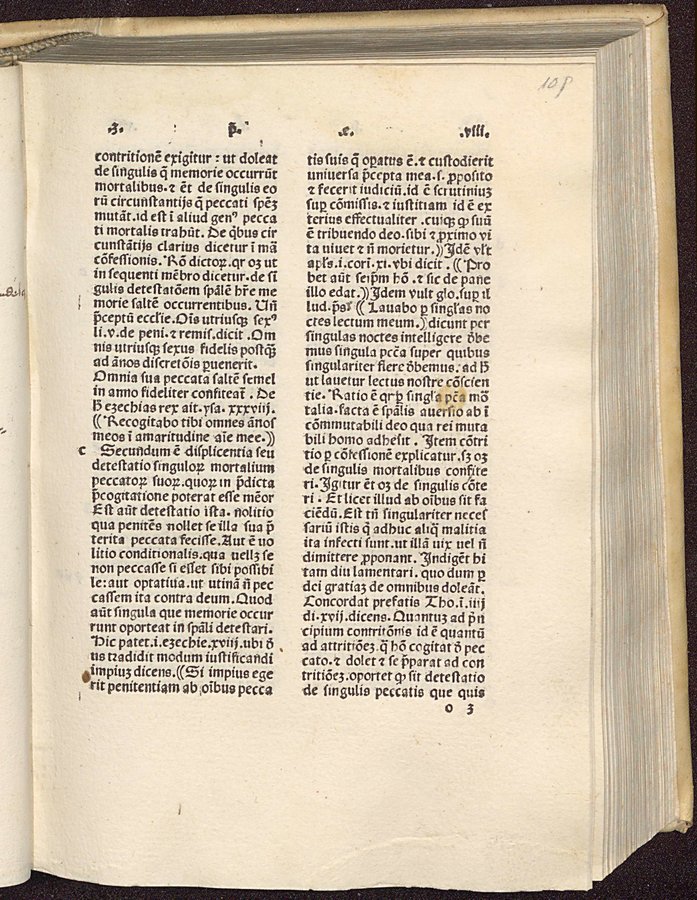 108
.3. p̄. .c. .viii.
contritionē exigitur : ut doleat
de singulis q̄ memorie occurrūt
mortalibus. ⁊ ēt de singulis eo
rū circunstantijs q̄ peccati spēꝫ
mutāt. id est ī aliud genꝰ pecca
ti mortalis trahūt. De q̄bus cir
cunstātijs clarius dicetur ī mā
cōfessionis. Rō dictoꝝ. qr oꝫ ut
in sequenti mēbro dicetur. de si
gulis detestatōem spālē hr̄e me
morie saltē occurrentibus. Uñ
p̄ceptū eccl̄ie. Oīs utriusqꝫ sexꝰ
li. v. de peni. ⁊ remis. dicit . Om
nis utriusqꝫ sexus fidelis postqꝫ̄
ad ānos discretōis ꝑuenerit.
Omnia sua peccata saltē semel
in anno fideliter confiteat᷑ . De
ħ ezechias rex ait. ysa. xxxviij.
(( Recogitabo tibi omnes ānos
meos ī amaritudine aīe mee.))
c Secundum ē displicentia seu
detestatio singuloꝝ mortalium
peccatoꝝ suoꝝ. quoꝝ in p̄dicta
p̄cogitatione poterat esse mēor
Est aūt detestatio ista. nolitio
qua penitēs nollet se illa sua p̄
terita peccata fecisse. Aut ē uo
litio conditionalis. qua uellꝫ se
non peccasse si esset sibi possibi
le: aut optatiua. ut utinā ñ pec
cassem ita contra deum. Quod
aūt singula que memorie occur
runt oporteat in spāli detestari.
Hic patet. i. ezechie. xviij. ubi ð
us tradidit modum iustificandi
impiuꝫ dicens. (( Si impius ege
rit penitentiam ab oībus pecca
tis suis q̄ oꝑatus ē. ⁊ custodierit
uniuersa p̄cepta mea. s. ꝓposito
⁊ fecerit iudiciū. id ē scrutiniuꝫ
suꝑ cōmissis. ⁊ iustitiam id ē ex
terius effectualiter . cuiqꝫ ꝙ suū
ē tribuendo deo. sibi ⁊ ꝓximo vi
ta uiuet ⁊ ñ morietur.)) Idē vl̄t
apl̄s. i. cori. xi. vbi dicit . (( Pro
bet aūt seip̄m hō . ⁊ sic de pane
illo edat.)) Idem vult glo. suꝑ il
lud. p̄sꝰ (( Lauabo ꝑ singl̄as no
ctes lectum meum.) dicunt per
singulas noctes intelligere ðbe
mus singula pcc̄a super quibus
singulariter flere ðbemus. ad ħ
ut lauetur lectus nostre cōscien
tie. Ratio ē qr ꝑ singl̄a pc̄a mō
talia. facta ē spālis auersio ab ī
cōmmutabili deo qua rei muta
bili homo adhesit . Item cōtri
tio ꝑ cōfessionē explicatur. sꝫ oꝫ
de singulis mortalibus confite
ri. Igitur ēt oꝫ de singulis cōte
ri . Et licet illud ab oībus sit fa
ciēdū. Est tñ singulariter neces
sariū istis q̄ adhuc aliq̄ malitia
ita infecti sunt. ut illā uix uel ñ
dimittere ꝓponant. Indigēt hi
tam diu lamentari. quo dum ꝑ
dei gratiaꝫ de omnibus doleāt.
Concordat prefatis Tho. ī. iiij
di. xvij. dicens. Quantuꝫ ad p̄n
cipium contritōnis id ē quantū
ad attritiōeꝫ. q̄ hō cogitat ð pec
cato. ⁊ dolet ⁊ se p̄parat ad con
tritiōeꝫ. oportet ꝙ sit detestatio
de singulis peccatis que quis
o 3